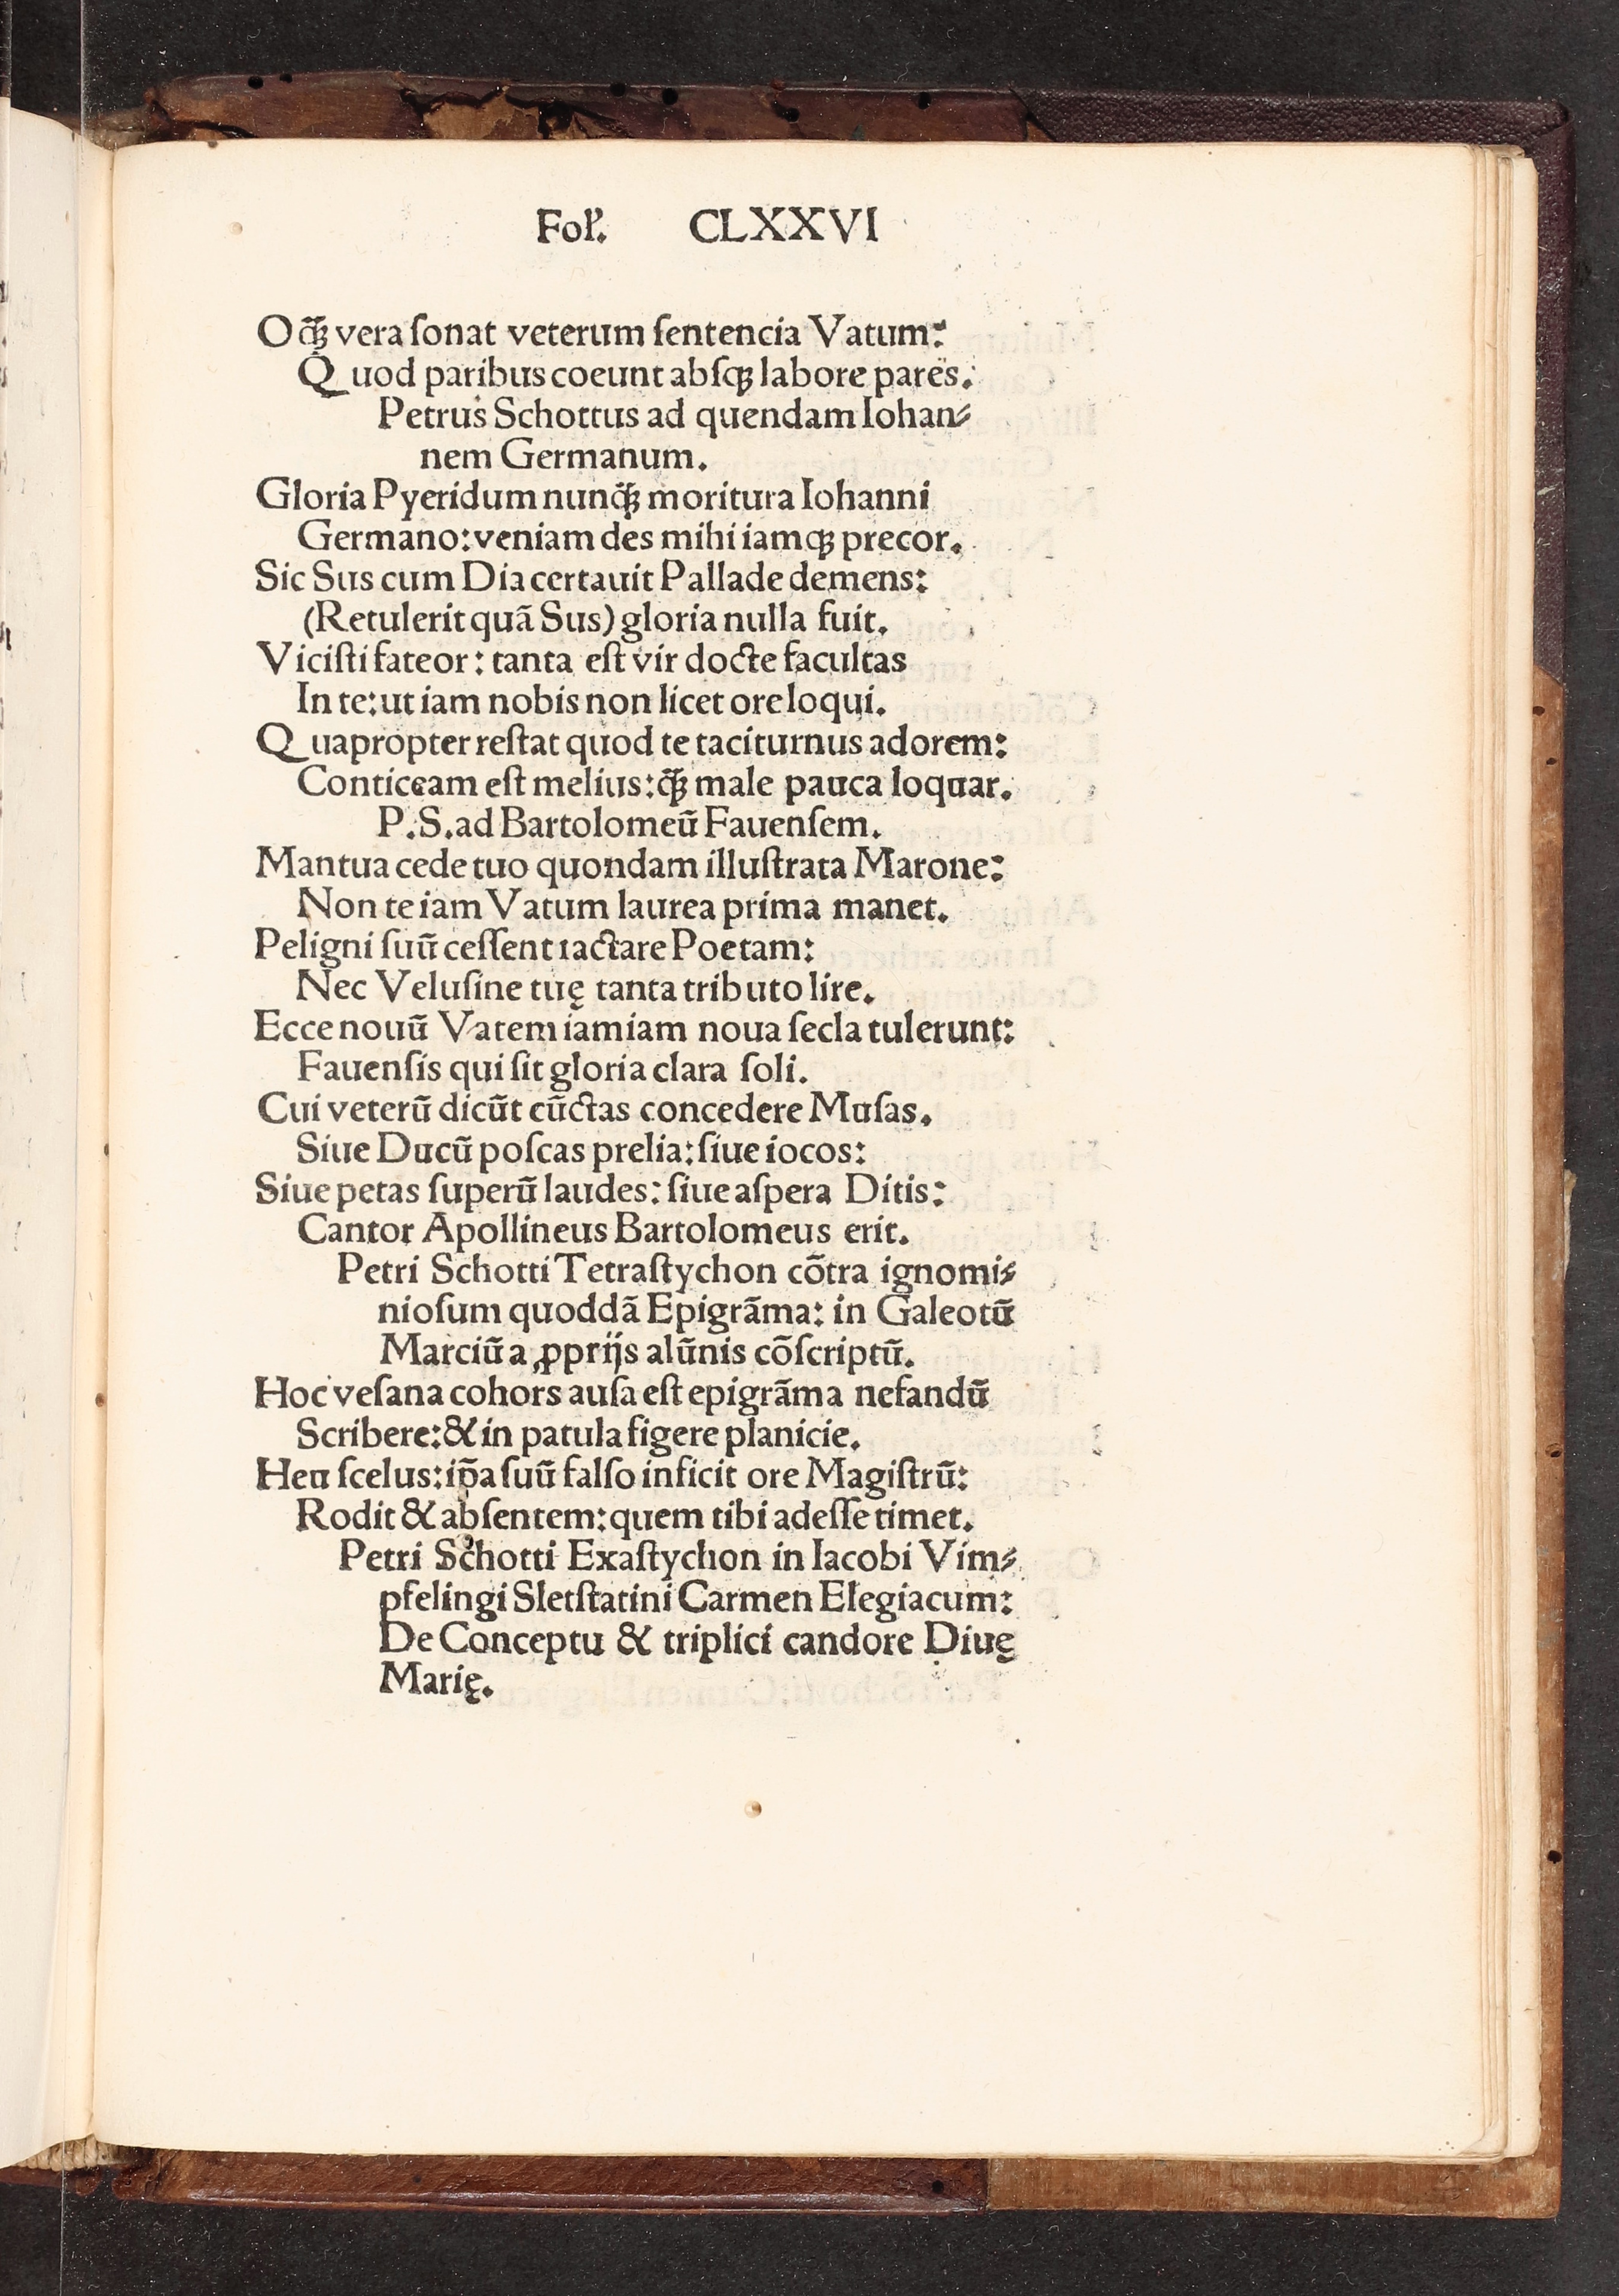 Folꝰ. CLXXVI
O ꝙ̃ꝫ vera ſonat veterum ſentencia Vatum:
Quod paribus coeunt abſqꝫ labore pares.
Petrus Schottus ad quendam Iohan⸗
nem Germanum.
Gloria Pyeridum nunꝙ̃ꝫ moritura Iohanni
Germano: veniam des mihi iamqꝫ precor.
Sic Sus cum Dia certauit Pallade demens:
(Retulerit quā Sus) gloria nulla fuit.
Viciſti fateor: tanta eſt vir docte facultas
In te: ut iam nobis non licet ore loqui.
Quapropter reſtat quod te taciturnus adorem:
Conticeam eſt melius: ꝙ̃ꝫ male pauca loquar.
P. S. ad Bartolomeū Fauenſem.
Mantua cede tuo quondam illuſtrata Marone:
Non te iam Vatum laurea prima manet.
Peligni ſuū ceſſent ıactare Poetam:
Nec Veluſine tuę tanta tributo lire.
Ecce nouū Vatem iamiam noua ſecla tulerunt:
Fauenſis qui ſit gloria clara ſoli.
Cui veterū dicūt cūctas concedere Muſas.
Siue Ducū poſcas prelia: ſiue iocos:
Siue petas ſuperū laudes: ſiue aſpera Ditis:
Cantor Apollineus Bartolomeus erit.
Petri Schotti Tetraſtychon cōtra ignomi⸗
nioſum quoddā Epigrāma: in Galeotū
Marciū a ꝓprijs alūnis cōſcriptū.
Hoc veſana cohors auſa eſt epigrāma nefandū
Scribere: & in patula figere planicie.
Heu ſcelus: ip̄a ſuū falſo inficit ore Magiſtrū:
Rodit & abſentem: quem tibi adeſſe timet.
Petri Schotti Exaſtychon in Iacobi Vim⸗
pfelingi Sletſtatini Carmen Elegiacum:
De Conceptu & triplici candore Diuę
Marię.